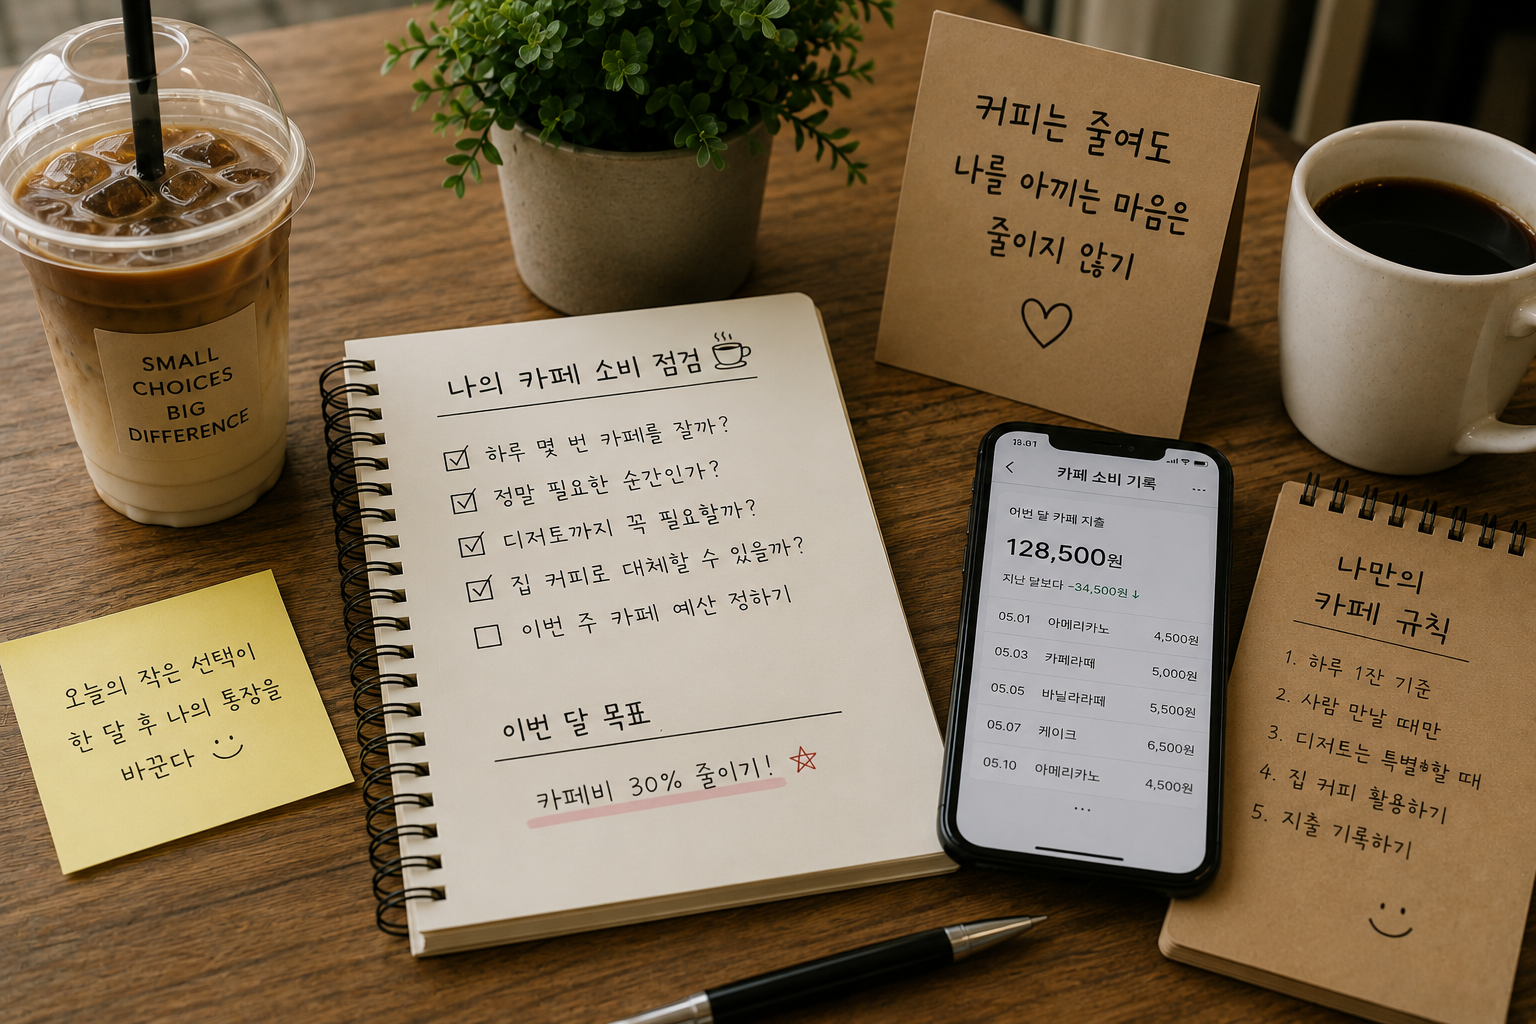 SMALL
CHOICES
BIG
DIFFERENCE
커피는 줄여도
나를 아끼는 마음은
줄이지 않기
나의 카페 소비 점검
하루 몇 번 카페를 잘까?
정말 필요한 순간인가?
디저토까지 꼭 필요할까?
집 커피로 대체할 수 있을까?
이번 주 카페 예산 정하기
이번 달 목표
카페비 30% 줄이기!
오늘의 작은 선택이
한 달 후 나의 통장을
바꾼다
카페 소비 기록
어번 달 카페 지출
128,500원
지난 달보다 -34,500원 ↓
05.01 아메리카노 4,500원
05.03 카페라떼 5,000원
05.05 바닐라라떼 5,500원
05.07 케이크 6,500원
05.10 아메리카노 4,500원
...
나만의
카페 규칙
1. 하루 1잔 기준
2. 사람 만날 때만
3. 디저토는 할 때
4. 집 커피 활용하기
5. 지출 기록하기